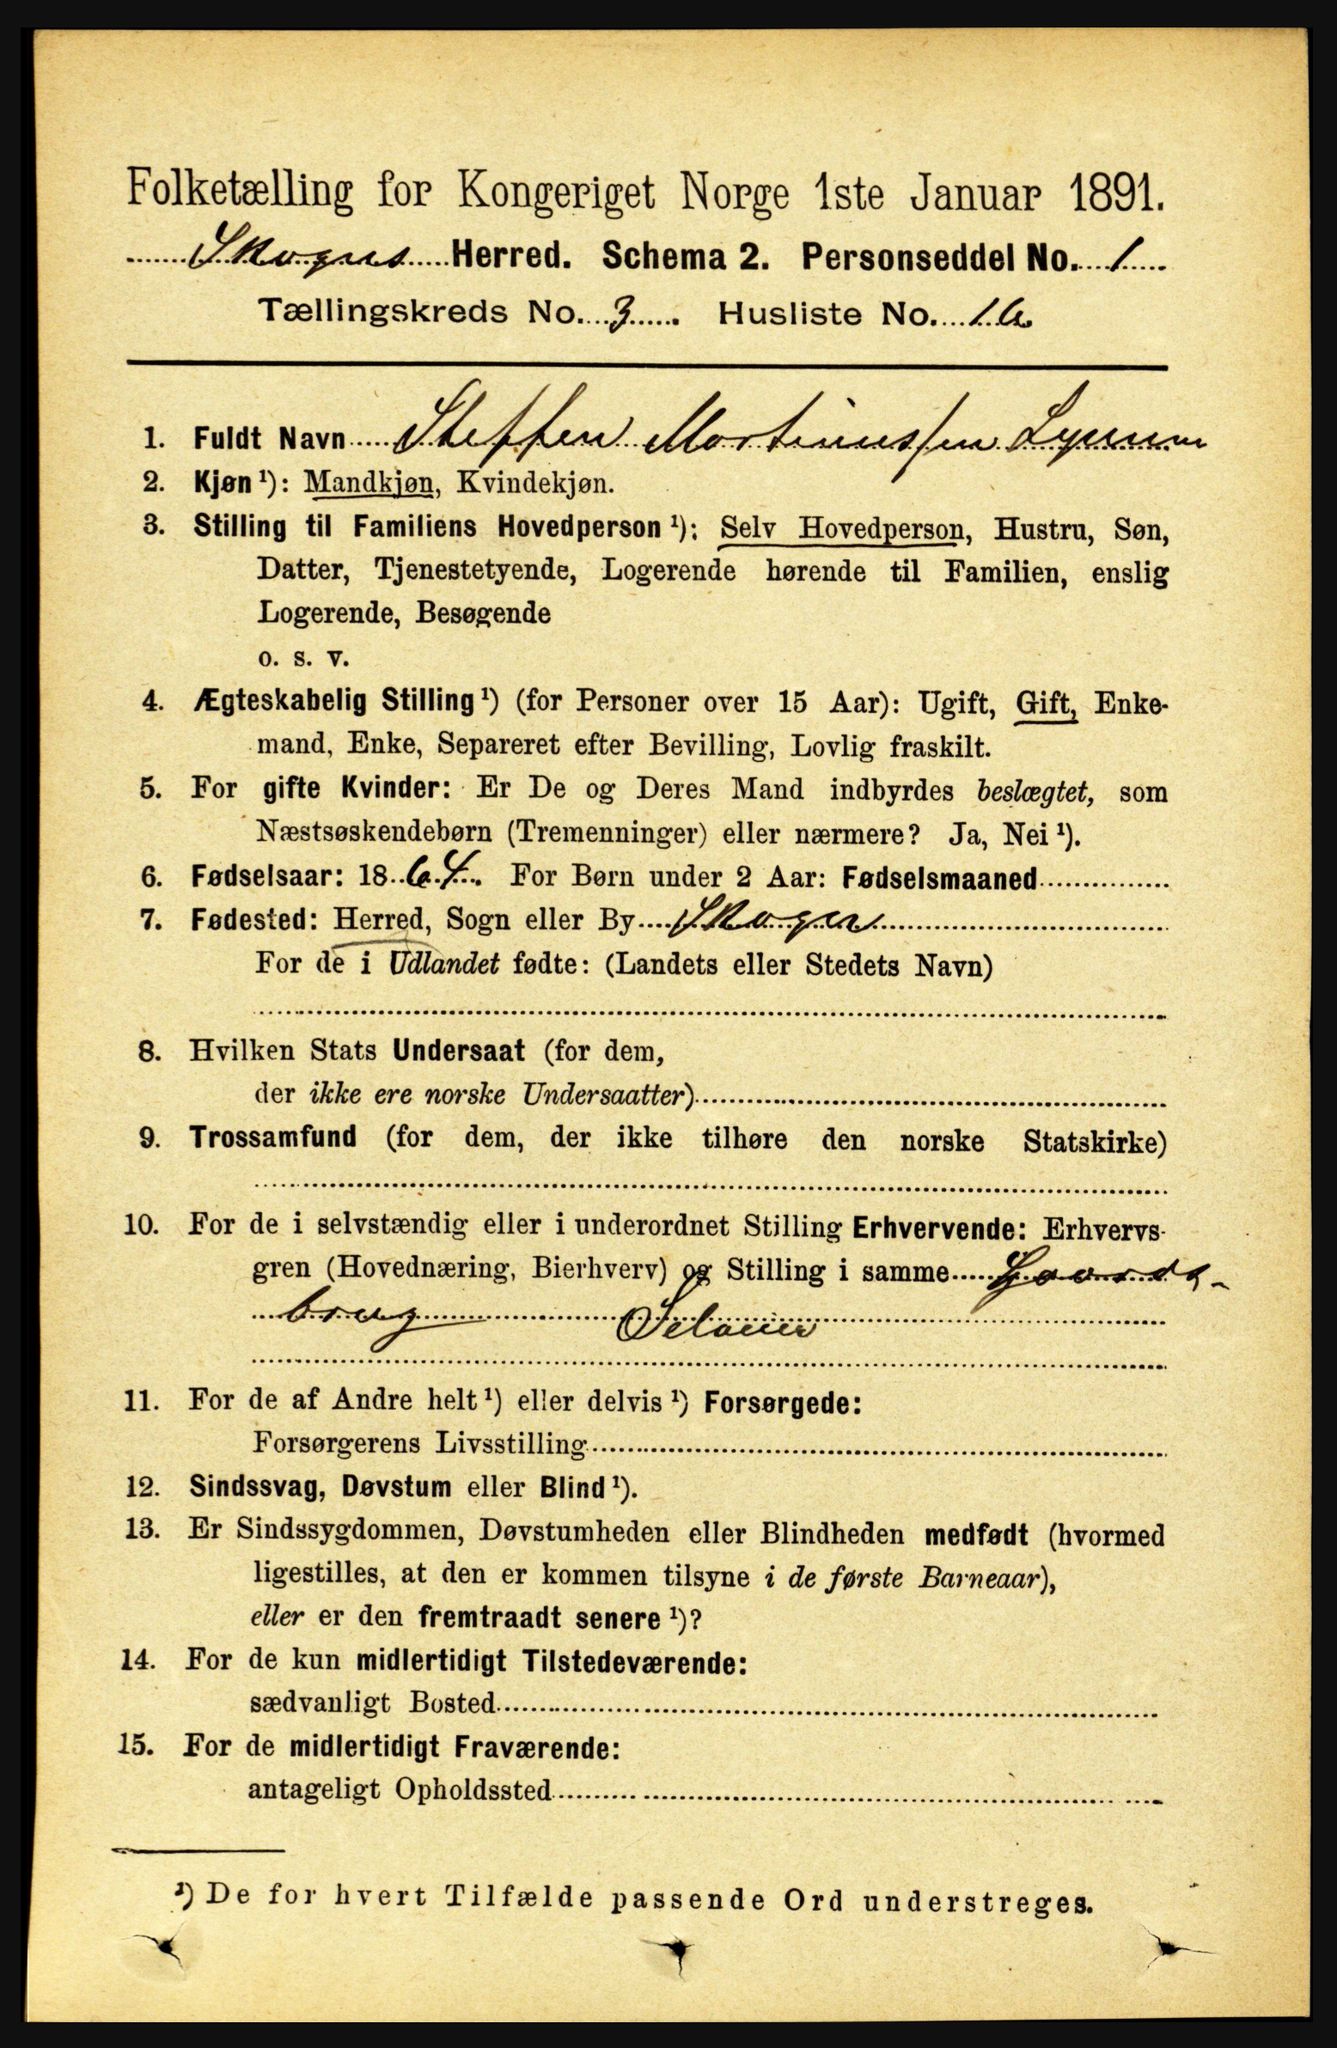 Folketælling for Kongeriget Norge 1ste Januar 1891.
Skogns Herred. Schema 2. Personseddel No. 1
Tællingskreds No. 3. Husliste No. 16
1. Fuldt Navn Steffen Martinussen
2. Kjøn ¹): Mandkjøn, Kvindekjøn.
3. Stilling til Familiens Hovedperson ¹): Selv Hovedperson, Hustru, Søn,
Datter, Tjenestetyende, Logerende hørende til Familien, enslig
Logerende, Besøgende
o. s. v.
4. Ægteskabelig Stilling ¹) (for Personer over 15 Aar): Ugift, Gift, Enke-
mand, Enke, Separeret efter Bevilling, Lovlig fraskilt.
5. For gifte Kvinder: Er De og Deres Mand indbyrdes beslægtet, som
Næstsøskendebørn (Tremenninger) eller nærmere? Ja, Nei ¹).
6. Fødselsaar: 1864. For Børn under 2 Aar: Fødselsmaaned
7. Fødested: Herred, Sogn eller By Skogn
For de i Udlandet fødte: (Landets eller Stedets Navn)
8. Hvilken Stats Undersaat (for dem,
der ikke ere norske Undersaatter)
9. Trossamfund (for dem, der ikke tilhøre den norske Statskirke)
10. For de i selvstændig eller i underordnet Stilling Erhvervende: Erhvervs-
gren (Hovednæring, Bierhverv) og Stilling i samme Gaards-
brug Seloier
11. For de af Andre helt ¹) eller delvis ¹) Forsørgede:
Forsørgerens Livsstilling
12. Sindssvag, Døvstum eller Blind ¹).
13. Er Sindssygdommen, Døvstumheden eller Blindheden medfødt (hvormed
ligestilles, at den er kommen tilsyne i de første Barneaar),
eller er den fremtraadt senere ¹)?
14. For de kun midlertidigt Tilstedeværende:
sædvanligt Bosted
15. For de midlertidigt Fraværende:
antageligt Opholdssted
¹) De for hvert Tilfælde passende Ord understreges.